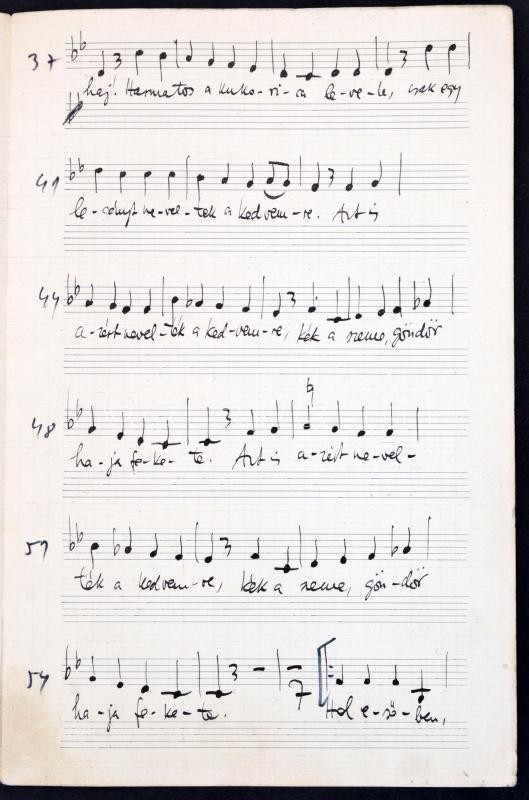 37
haj! Harmatos a kuko-ri-ca le-ve-le, csak egy
41
le-ányt ne-vel-tek a kedvem-re. Azt is
44
a-zért nevel-ték a ked-vem-re, kék a szeme, göndör
48
ha-ja fe-ke-te. Azt is a-zért ne-vel-
51
ték a kedvem-re, kék a szeme, gön-dör
54
7
ha-ja fe-ke-te. Hol e-ső-ben,